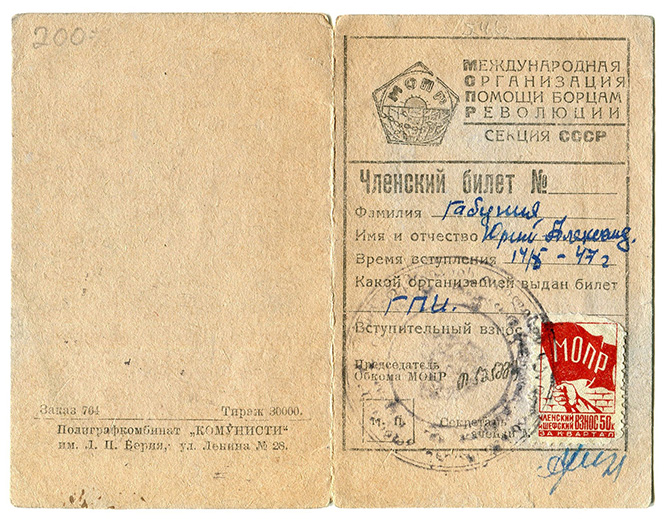 200=
Заказ 764 Тираж 30000.
Полиграфкомбинат „КОМУНИСТИ“
им. Л. П. Берия, ул. Ленина № 28.
МОПР
МЕЖДУНАРОДНАЯ
ОРГАНИЗАЦИЯ
ПОМОЩИ БОРЦАМ
РЕВОЛЮЦИИ
СЕКЦИЯ СССР
Членский билет №
Фамилия Габуния
Имя и отчество Юрий Александ.
Время вступления 14/X - 47 г
Какой организацией выдан билет
ГПИ.
Вступительный взнос
Председатель
Обкома МОПР
М. П.
Секретарь
МОПР
ЧЛЕНСКИЙ
и ШЕФСКИЙ ВЗНОС 50к
ЗА КВАРТАЛ